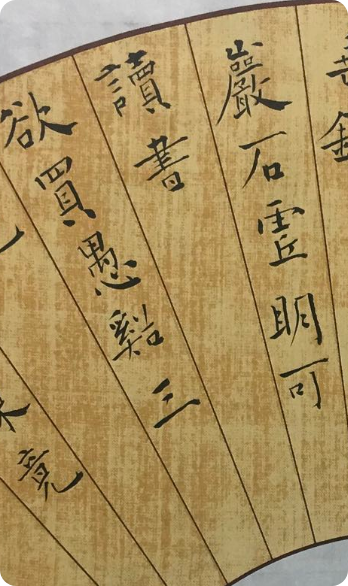 巖石虛明可
讀書
欲買愚谿三
竟